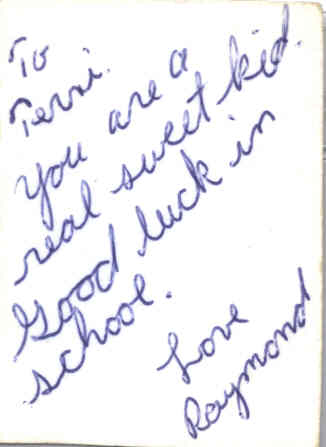 To
Terri.
You are a
real sweet kid.
Good luck in
school.
Love
Raymond